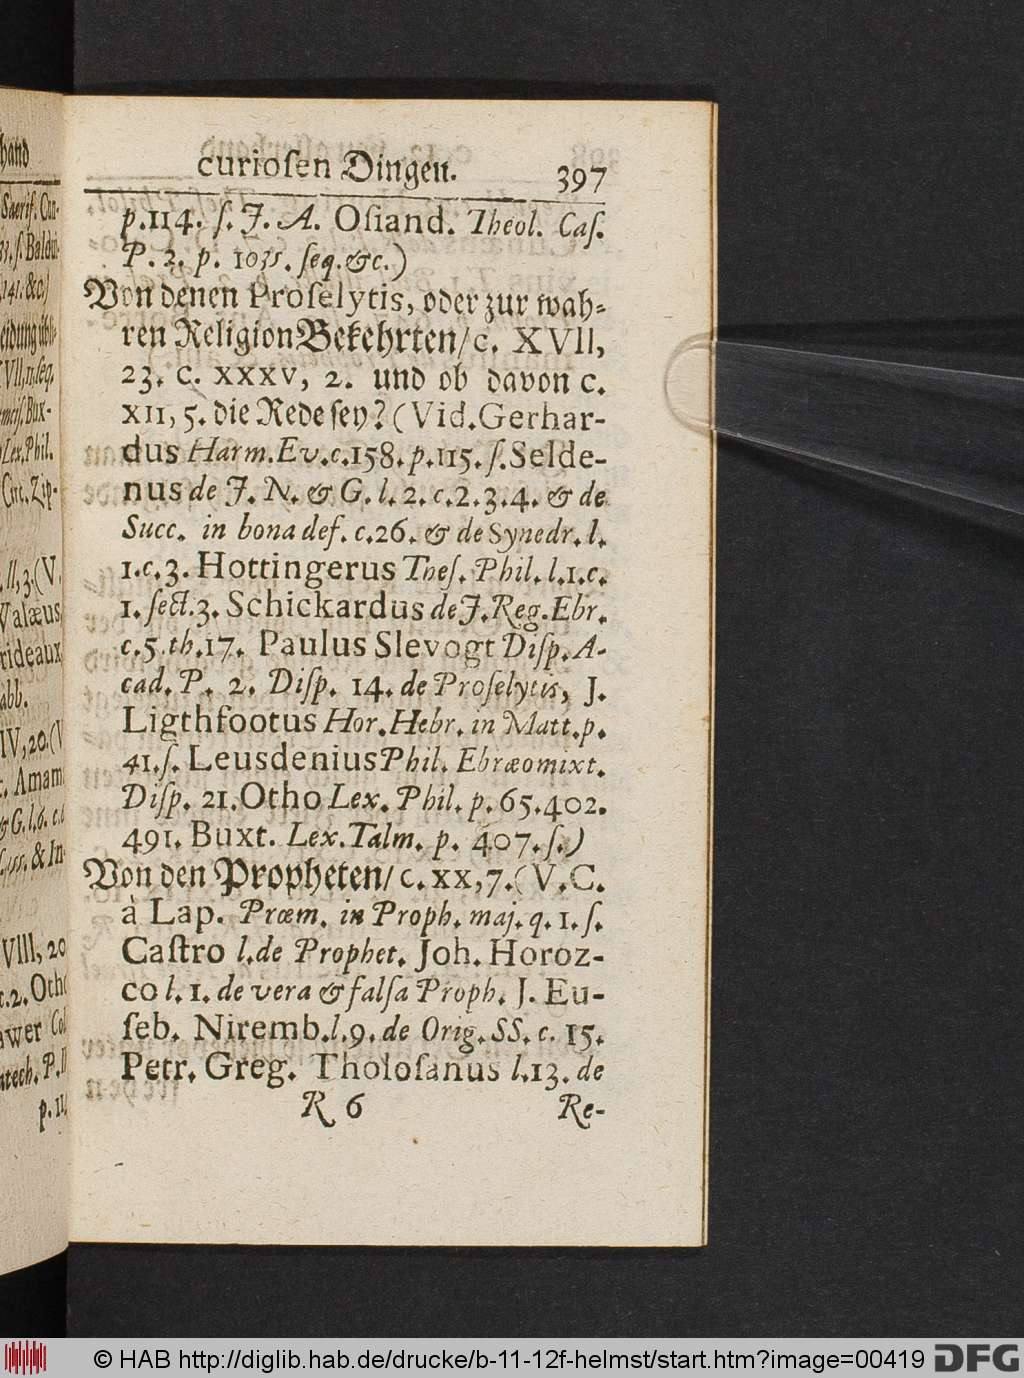 curioſen Dingen. 397
p.114. ſ. J. A. Oſiand. Theol. Caſ.
P. 2. p. 1035. ſeq. &c.)
Von denen Proſelytis, oder zur wah-
ren Religion Bekehrten/ c. XVII,
23. c. XXXV, 2. und ob davon c.
XII, 5. die Rede ſey? (Vid. Gerhar-
dus Harm. Ev. c. 158. p. 115. ſ. Selde-
nus de J. N. & G. l. 2. c. 2. 3. 4. & de
Succ. in bona def. c. 26. & de Synedr. l.
1. c. 3. Hottingerus Theſ. Phil. l. 1. c.
1. ſect. 3. Schickardus de J. Reg. Ebr.
c. 5. th. 17. Paulus Slevogt Diſp. A-
cad. P. 2. Diſp. 14. de Proſelytis, J.
Ligthfootus Hor. Hebr. in Matt. p.
41. ſ. Leusdenius Phil. Ebræomixt.
Diſp. 21. Otho Lex. Phil. p. 65. 402.
491. Buxt. Lex. Talm. p. 407. ſ.)
Von den Propheten/ c. XX, 7. (V. C.
à Lap. Proœm. in Proph. maj. q. 1. ſ.
Caſtro l. de Prophet. Joh. Horoz-
co l. 1. de vera & falſa Proph. J. Eu-
ſeb. Niremb. l. 9. de Orig. SS. c. 15.
Petr. Greg. Tholoſanus l. 13. de
R 6 Re-
© HAB http://diglib.hab.de/drucke/b-11-12f-helmst/start.htm?image=00419 DFG